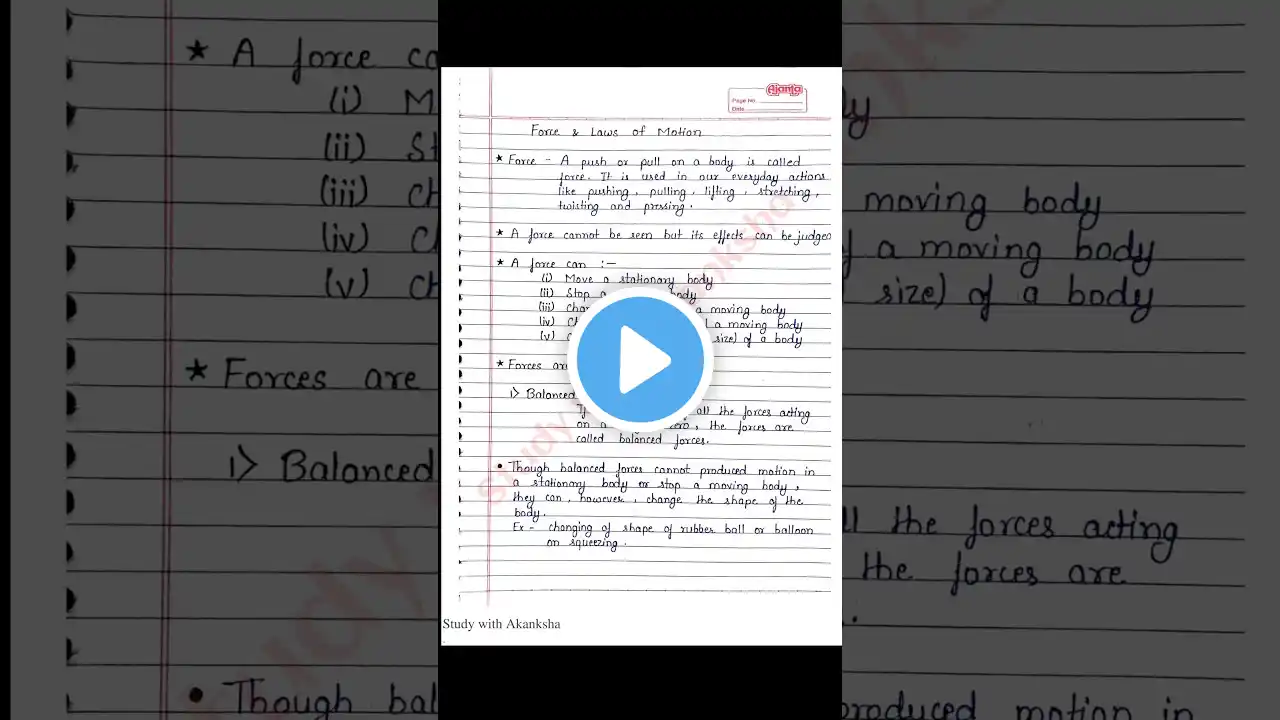 Ajanta
Page No.
Date
Force & Laws of Motion
★ Force - A push or pull on a body is called
force. It is used in our everyday actions
like pushing, pulling, lifting, stretching,
twisting and pressing.
★ A force cannot be seen but its effects can be judged
★ A force can :-
(i) Move a stationary body
(ii) Stop a body
(iii) a moving body
(iv) a moving body
(v) size) of a body
★ Forces are
1> Balanced
all the forces acting
on a zero, the forces are
called balanced forces.
• Though balanced forces cannot produced motion in
a stationary body or stop a moving body,
they can, however, change the shape of the
body.
Ex - changing of shape of rubber ball or balloon
on squeezing.
Study with Akanksha
★ A force
(i)
(ii)
(iii)
(iv)
(v)
moving body
a moving body
size) of a body
★ Forces are
1> Balanced
the forces acting
the forces are
• Though
produced motion in